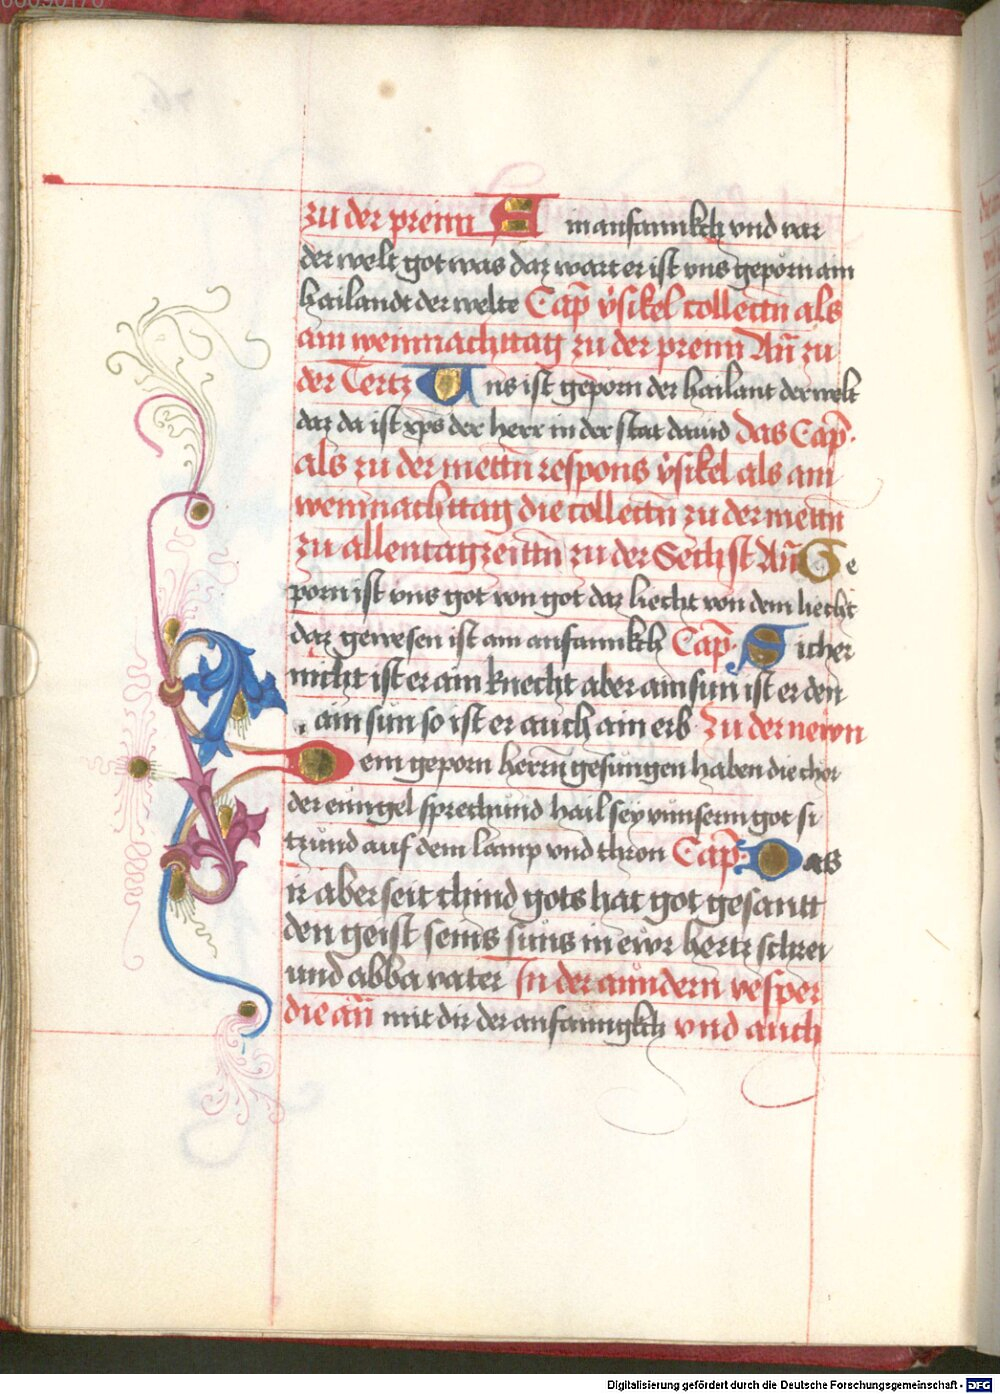 00090170
zu der preim Ein anfannkch vnd var
der welt got was daz wart er ist vns geporn ain
hailandt der welte Cap̄ v̊sikel collectn als
am weinnachttag zu der preim Añ zu
der Tertz Vns ist geporn der hailant der welt
daz da ist xp̄s der herr in der stat dauid das Cap̄.
als zu der mettn respons v̊sikel als am
weinnachttag die collectn zu der mettn
zu allen tagzeittn zu der Sechst Añ Ge
porn ist vns got von got daz liecht von dem liecht
daz gewesen ist am anfannkch Cap̄. Sicher
nicht ist er ain knecht aber ain sun ist er den
ain sun so ist er auch ain erb Zu der newn
Dem geporn herrn gesungen haben die chor
der enngel sprechund hail sey vnnserm got si
tzund auf dem lamp vnd thron Cap̄. Das
ir aber seit chind gots hat got gesantt
den geist seins suns in ewr hertz schrei
und abba vater In der anndern vesper
die añ mit dir der anfanngkch vnd auch
Digitalisierung gefördert durch die Deutsche Forschungsgemeinschaft - DFG